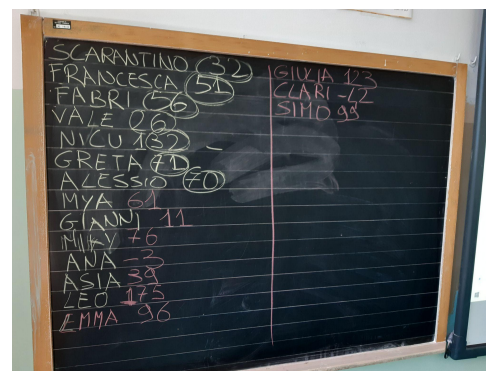 SCARANTINO 32
FRANCESCA 51
FABRI 56
VALE 26
NICU 132 -
GRETA 71
ALESSIO 70
MYA 61
GIANNI 11
MIKY 76
ANA -3
ASIA 39
LEO 175
EMMA 96
GIULIA 123
CLARI -42
SIMO 99